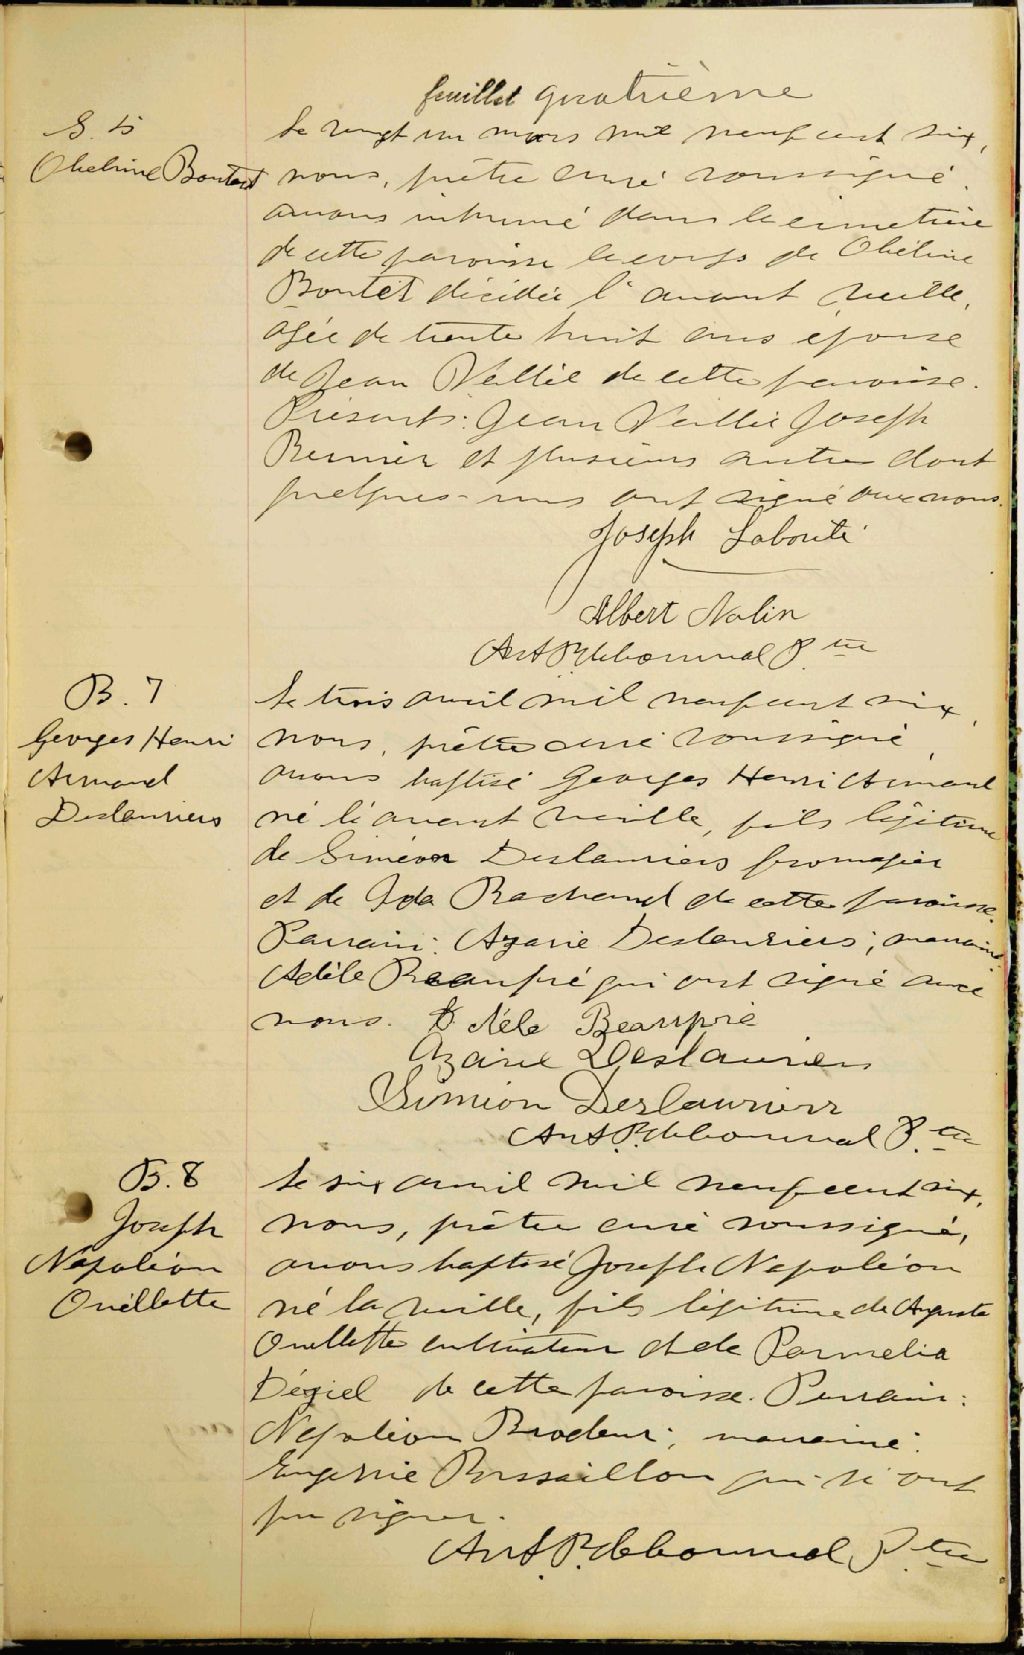 feuillet quatrième
S. 5
Obéline Boutet
Le vingt un mars mil neuf cent six,
nous, prêtre curé soussigné.
avons inhumé dans le cimetière
de cette paroisse le corps de Obéline
Boutet décédée l'avant veille,
agée de trente huit ans epouse
de Jean Veillée de cette paroisse.
Présents: Jean Veillée Joseph
Bernier et plusieurs autres dont
quelques-uns ont signé avec nous.
Joseph Labonté
Albert Nolin
Ptre
B. 7
Georges Henri
Armand
Deslauriers
Le trois avril mil neuf cent six,
nous, prêtre curé soussigné,
avons baptisé Georges Henri Armand
né l'avant veille, fils légitime
de Siméon Deslauriers fromagier
et de Ida Bachand de cette paroisse.
Parrain: Azarie Deslauriers; marraine
Adèle Beaupré qui ont signé avec
nous. Adéle Beaupré
Azarie Deslauriers
Siméon Deslauriers
Ptre
B. 8
Joseph
Napoléon
Ouéllette
Le six avril mil neuf cent six,
nous, prêtre curé soussigné,
avons baptisé Joseph Napoléon
né la veille, fils légitime de Auguste
Ouellette cultivateur et de Parmelia
Déziel de cette paroisse. Parrain:
Napoléon Brodeur; marraine:
Eugenie Brissaillon qui n'ont
pu signer.
Ptre